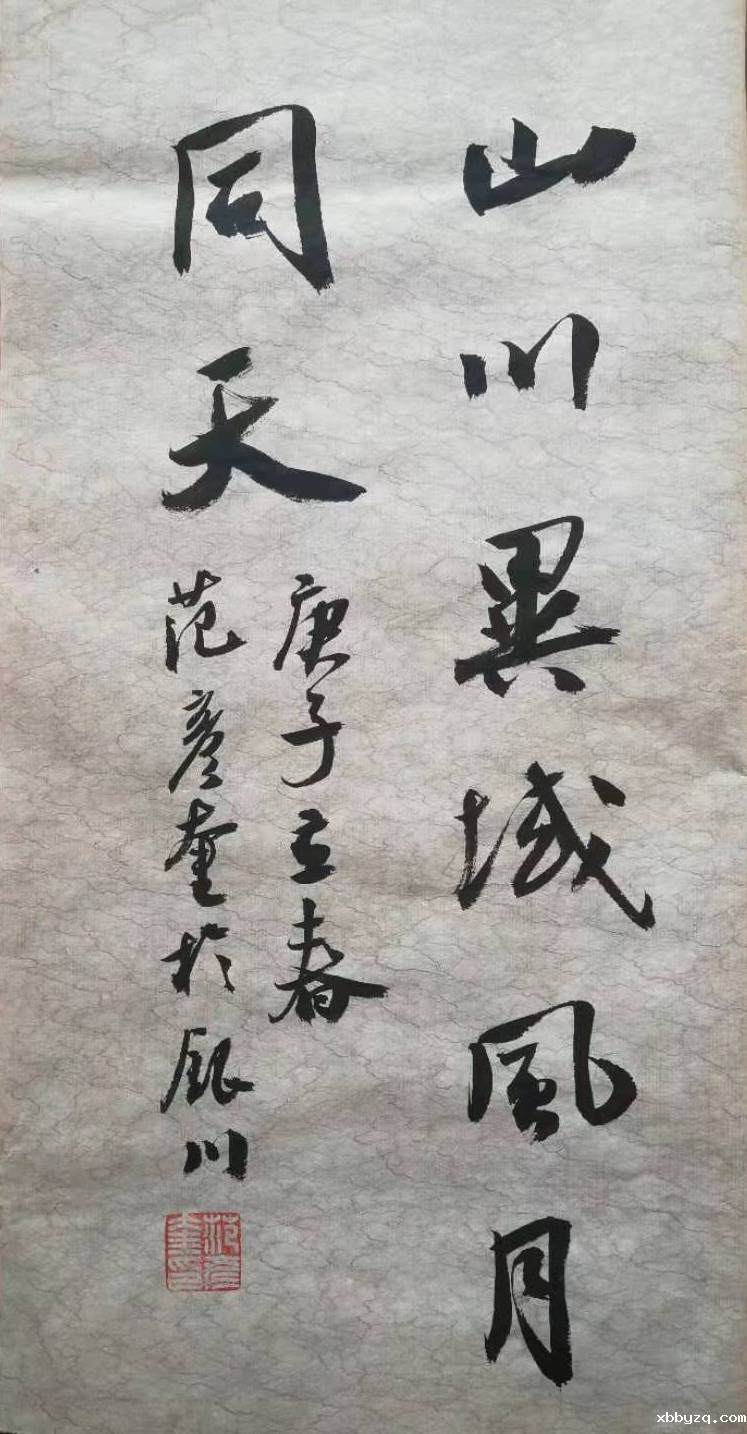 山川異域風月
同天
庚子立春
范彦奎於銀川
xbbyzq.com